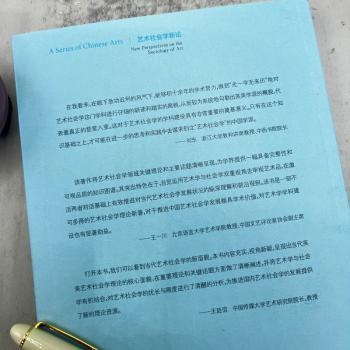 A Series of Chinese Arts | 艺术社会学新论
New Perspectives on the
Sociology of Art
在我看来,在眼下浮动近利的风气下,能够积十余年的学术努力,做到"无一字无来历"地对
艺术社会学这门学科进行仔细的研读和踏实的爬梳,从而较为系统地勾勒出英美学派的概貌,代
表着真正的登堂入室。这对于艺术社会学的学科建设具有非常重要的奠基意义。只有在这个知
识基础之上,才可能在进一步的思考和实践中去谋求创立"艺术社会学"的中国学派。
——刘东 浙江大学教授和讲席教授,中西书院院长
该著作将艺术社会学领域关键理论和主要话题清晰呈现,为学界提供一幅具备完整性和
可观品质的知识图谱。其突出特色在于,自觉运用艺术学与社会学双重视角去审视艺术品,在激
活两者对话基础上有效推进对当代艺术社会学发展状况的纵深观察和前沿探测。这书是一部不
可多得的艺术社会学理论新著,对于推动中国艺术社会学发展极具学术价值,对艺术学学科建
设也有显著助益。
——王一川 北京语言大学艺术学院教授,中国文艺评论家协会副主席
打开本书,我们可以看到当代艺术社会学的新面貌。本书内容充实,视角新颖,呈现出当代英
美艺术社会学理论的核心面貌,在重要理论和关键话题方面做了清晰阐述,并将艺术学与社会
学有机结合,对艺术社会学的优长与限度进行了清醒的分析,为推进国内艺术社会学的发展提供
了新的理论资源。
——王廷信 中国传媒大学艺术研究院院长,教授